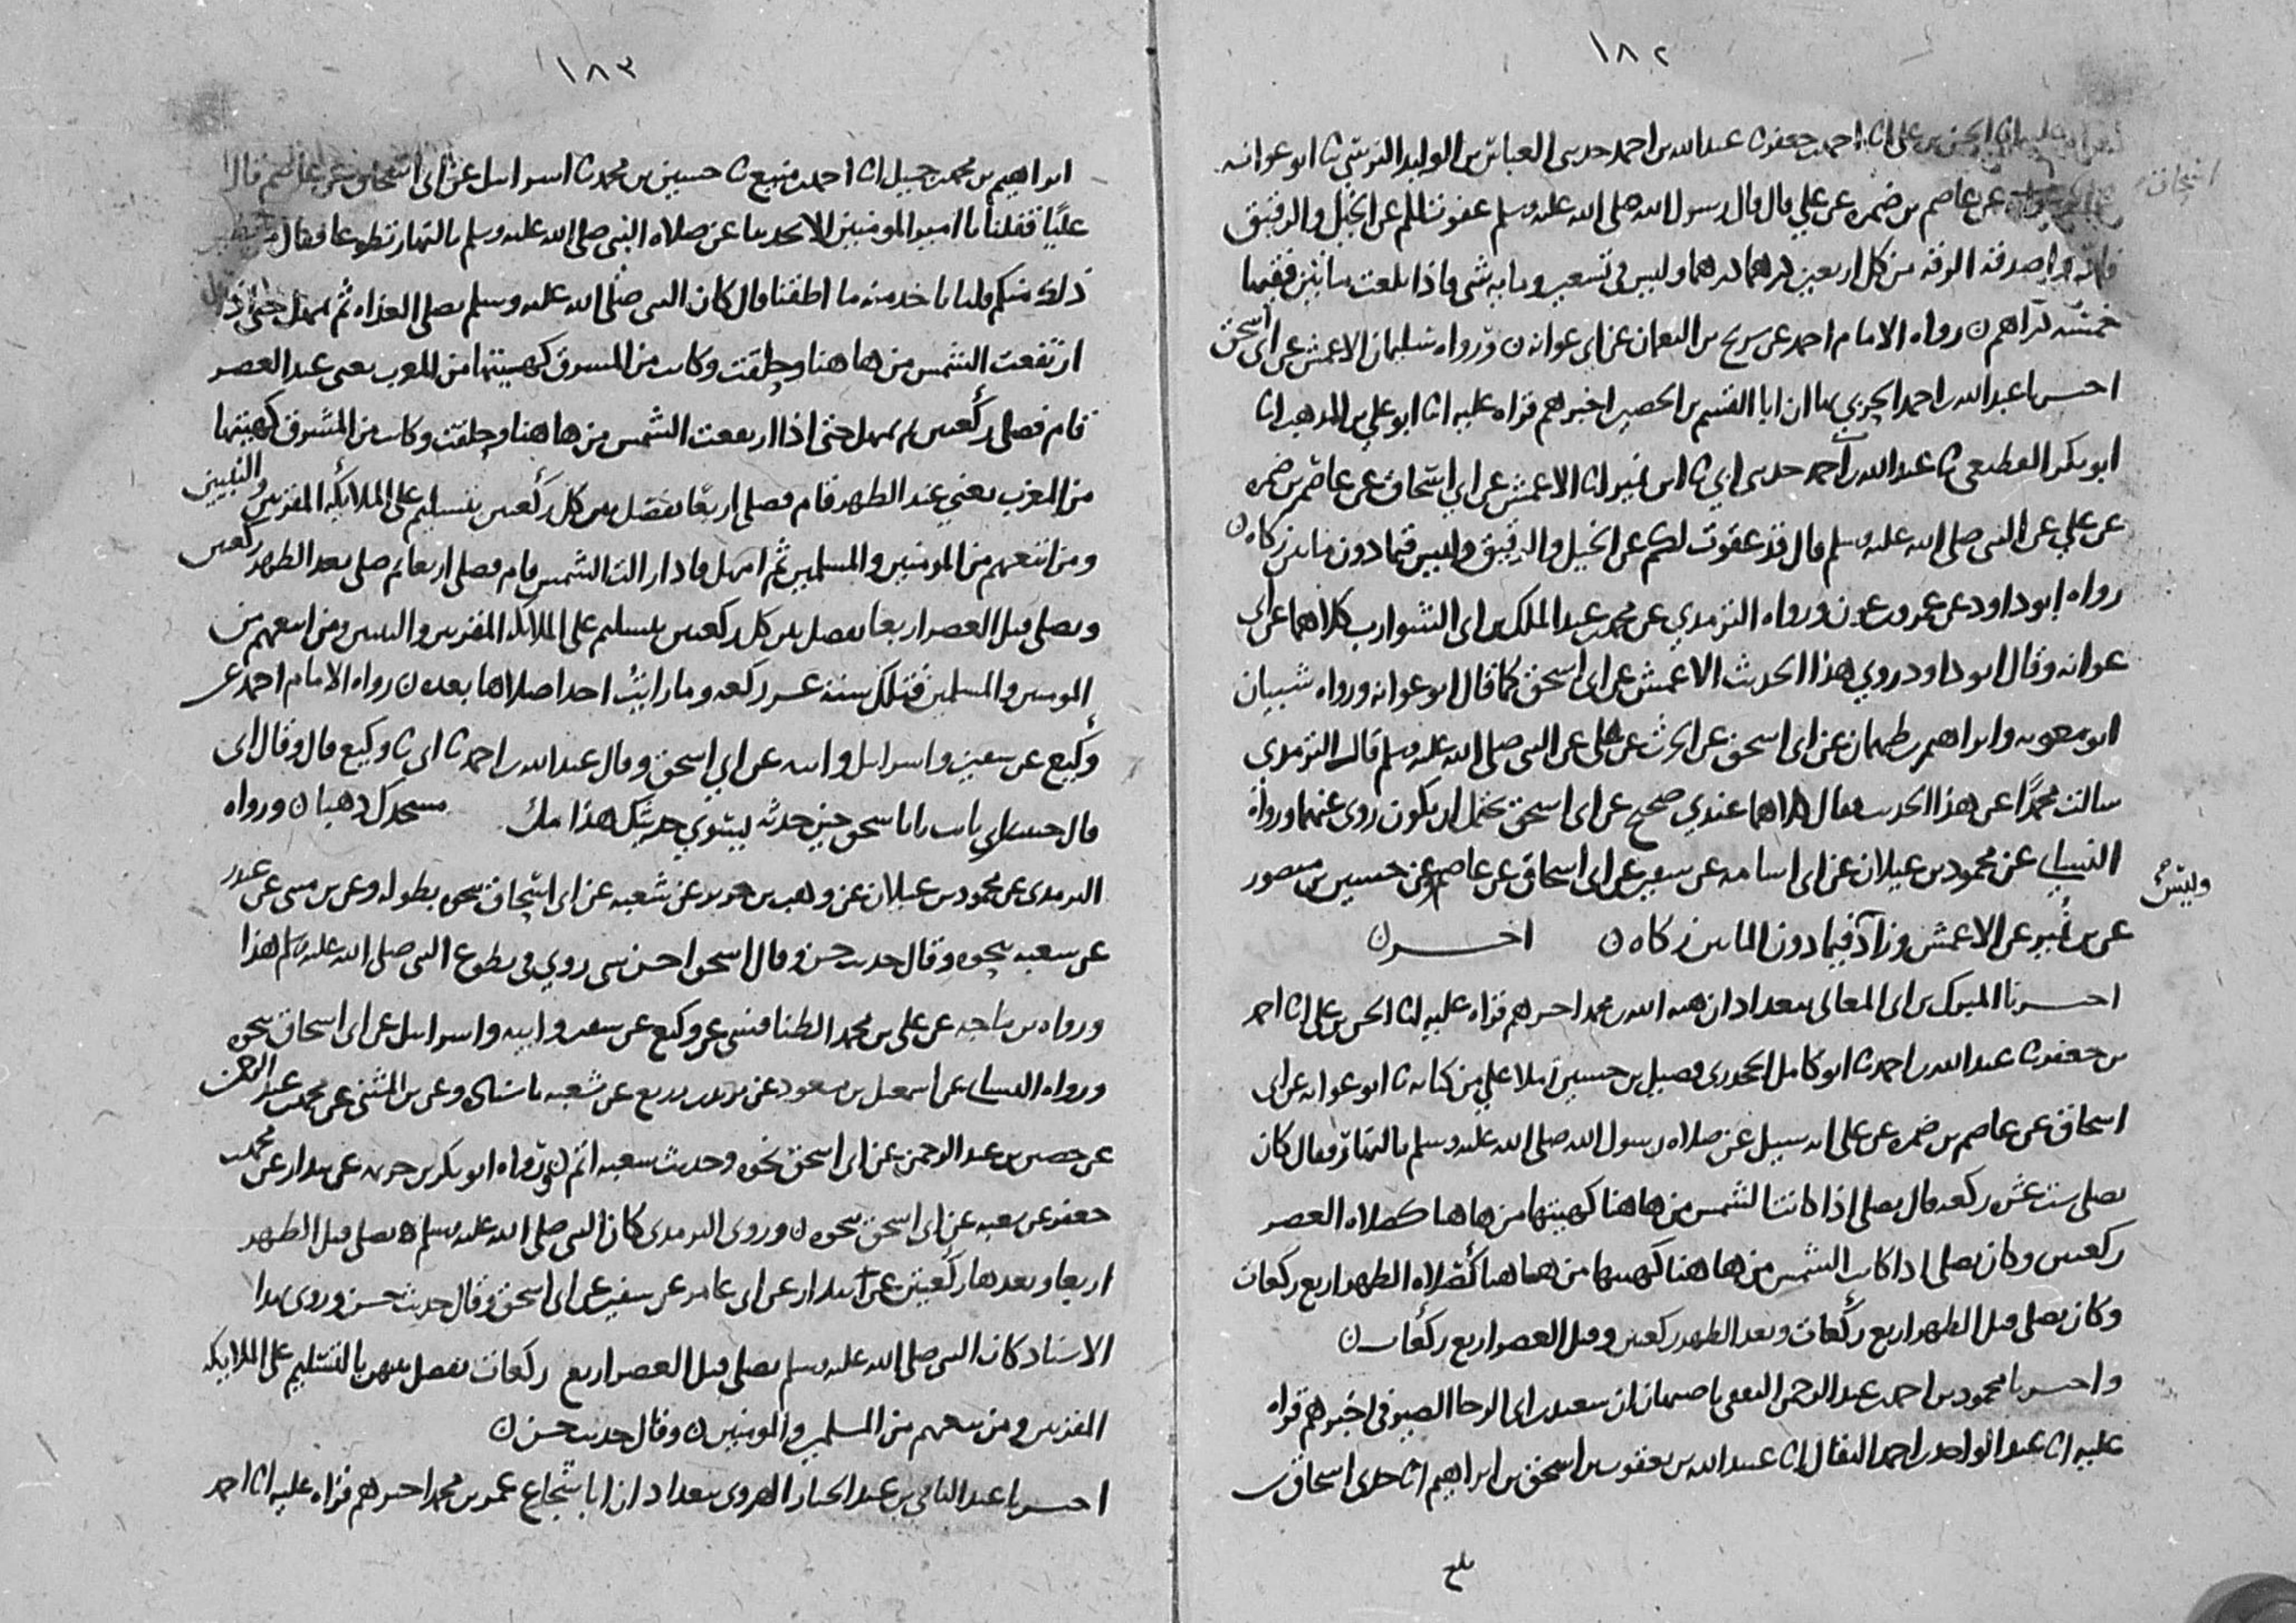 ١٨٢
الحسن بن علي انا احمد بن جعفر نا عبد الله بن احمد حدثني العباس بن الوليد النرسي نا ابو عوانه
اسحاق
عن عاصم بن ضمره عن علي قال قال رسول الله صلى الله عليه وسلم عفوت لكم عن الخيل والرقيق
صدقه الرقه من كل اربعين درهما درهما وليس في تسعين ومايه شي فاذا بلغت مايتين ففيها
خمسه دراهم ن رواه الامام احمد عن سريج بن النعمان عن ابي عوانه ن ورواه سليمان الاعمش عن ابي اسحق
اخبرنا عبد الله بن احمد الحربي بها ان ابا القسم بن الحصين اخبرهم قراه عليه انا ابو علي بن المذهب انا
ابو بكر القطيعي نا عبد الله بن احمد حدثني ابي نا ابن نمير انا الاعمش عن ابي اسحاق عن عاصم بن ضمره
عن علي عن النبي صلى الله عليه وسلم قال قد عفوت لكم عن الخيل والرقيق وليس فيما دون مايتين زكاه ن
رواه ابو داود عن عمرو بن عون ورواه الترمذي عن محمد بن عبد الملك بن ابي الشوارب كلاهما عن ابي
عوانه وقال ابو داود روي هذا الحديث الاعمش عن ابي اسحق كما قال ابو عوانه ورواه شيبان
ابو معويه وابراهيم بن طهمان عن ابي اسحق عن الحرث عن علي عن النبي صلى الله عليه وسلم قال الترمذي
سالت محمدا عن هذا الحديث فقال كلاهما عندي صحيح عن ابي اسحق يحتمل ان يكون روى عنهما ورواه
النسايي عن محمود بن غيلان عن ابي اسامه عن سفين عن ابي اسحاق عن عاصم وعن حسين بن منصور
وليس
عن بن نمير عن الاعمش وزاد فيما دون المايتين زكاه ن اخر ن
اخبرنا المبرك بن ابي المعالي ببغداد ان هبه الله بن محمد اخبرهم قراه عليه انا الحسن بن علي انا احمد
بن جعفر نا عبد الله بن احمد نا ابو كامل الجحدري فضيل بن حسين املا علي من كتابه نا ابو عوانه عن ابي
اسحاق عن عاصم بن ضمره عن علي انه سيل عن صلاه رسول الله صلى الله عليه وسلم بالنهار فقال كان
يصلي ست عشره ركعه قال يصلي اذا كانت الشمس من هاهنا كهيئتها من هاهنا كصلاه العصر
ركعتين وكان يصلي اذا كانت الشمس من هاهنا كهيئتها من هاهنا كصلاه الظهر اربع ركعات
وكان يصلي قبل الظهر اربع ركعات وبعد الظهر ركعتين وقبل العصر اربع ركعات ن
واخبرنا محمود بن احمد بن عبد الرحمن الثقفي باصبهان ان سعيد بن ابي الرجا الصيرفي اخبرهم قراه
عليه انا عبد الواحد بن احمد البقال انا عبيد الله بن يعقوب بن اسحق بن ابراهيم انا جدي اسحاق بن
بلغ
١٨٣
ابراهيم بن محمد بن جميل انا احمد بن منيع نا حسين بن محمد نا اسرائيل عن ابي اسحاق عن عاصم قال
عليا فقلنا يا امير المومنين الا تحدثنا عن صلاه النبي صلى الله عليه وسلم بالنهار تطوعا فقال من يطيق
ذلك منكم قلنا ناخذ منه ما اطقنا قال كان النبي صلى الله عليه وسلم يصلي الغداه ثم يمهل حتى اذا
ارتفعت الشمس من هاهنا وحلقت وكانت من المشرق كهيئتها من المغرب يعني عند العصر
قام فصلى ركعتين ثم يمهل حتى اذا ارتفعت الشمس من هاهنا وحلقت وكانت من المشرق كهيئتها
من المغرب يعني عند الظهر قام فصلى اربعا يفصل بين كل ركعتين بتسليم على الملايكه المقربين والنبيين
ومن اتبعهم من المومنين والمسلمين ثم امهل فاذا زالت الشمس قام فصلى اربعا ثم صلى بعد الظهر ركعتين
ويصلي قبل العصر اربعا يفصل بين كل ركعتين بتسليم على الملايكه المقربين والنبيين ومن اتبعهم من
المومنين والمسلمين فتلك ستة عشر ركعه وما رايت احدا صلاها بعده ن رواه الامام احمد عن
وكيع عن سفين واسرائيل وابيه عن ابي اسحق وقال عبد الله بن احمد نا ابي نا وكيع قال وقال ابي
قال حبيب بن ابي ثابت يا ابا اسحق حين حدثه يسوي حديثك هذا ملء مسجدك ذهبا ن ورواه
الترمذي عن محمود بن غيلان عن وهب بن جرير عن شعبه عن ابي اسحاق نحوه بطوله وعن بن مثنى عن غندر
عن شعبه نحوه وقال حديث حسن وقال اسحق احسن شي روي في تطوع النبي صلى الله عليه وسلم هذا
ورواه بن ماجه عن علي بن محمد الطنافسي عن وكيع عن سفين وابيه واسرائيل عن ابي اسحاق نحوه
ورواه النسايي عن اسمعيل بن مسعود عن يزيد بن زريع عن شعبه باسناده وعن بن المثنى عن محمد بن عبد الرحمن
عن حصين بن عبد الرحمن عن ابي اسحق نحوه وحديث شعبه اتم ن ورواه ابو بكر بن خزيمه عن بندار عن محمد بن
جعفر عن شعبه عن ابي اسحق نحوه ن وروى الترمذي كان النبي صلى الله عليه وسلم يصلي قبل الظهر
اربعا وبعدها ركعتين عن بندار عن ابي عامر عن سفين عن ابي اسحق وقال حديث حسن وروى بهذا
الاسناد كان النبي صلى الله عليه وسلم يصلي قبل العصر اربع ركعات يفصل بينهن بالتسليم على الملايكه
المقربين ومن تبعهم من المسلمين والمومنين ن وقال حديث حسن ن
اخبرنا عبد الباقي بن عبد الجبار الهروي ببغداد ان ابا شجاع عمر بن محمد اخبرهم قراه عليه انا احمد